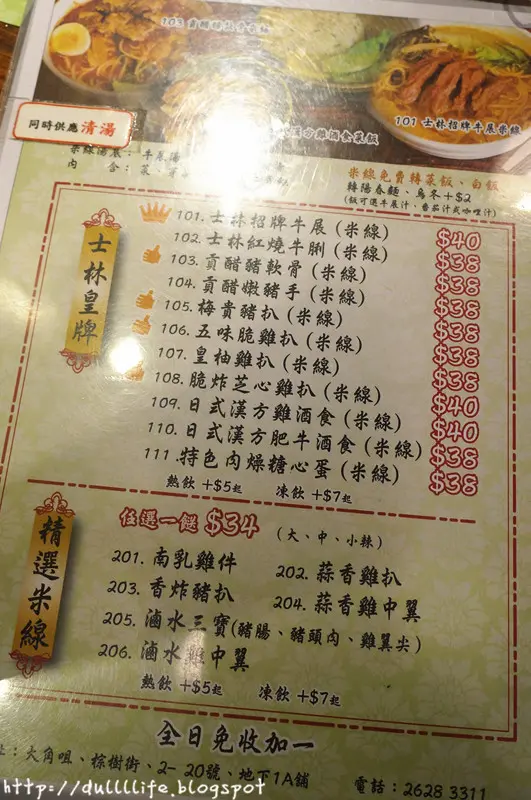 103 貢醋豬軟骨米線
漢方雞酒食菜飯
101 士林招牌牛展米線
同時供應清湯
米線湯底：牛展湯
米線免費轉菜飯、白飯
轉陽春麵、烏冬+$2
(飯可選牛展汁、番茄汁或咖哩汁)
士林皇牌
101. 士林招牌牛展 (米線) $40
102. 士林紅燒牛脷 (米線) $38
103. 貢醋豬軟骨 (米線) $38
104. 貢醋嫩豬手 (米線) $38
105. 梅貴豬扒 (米線) $38
106. 五味脆雞扒 (米線) $38
107. 皇柚雞扒 (米線) $38
108. 脆炸芝心雞扒 (米線) $40
109. 日式漢方雞酒食 (米線) $40
110. 日式漢方肥牛酒食 (米線) $38
111. 特色肉燥糖心蛋 (米線) $38
熱飲 +$5起 凍飲 +$7起
精選米線
任選一餸 $34 (大、中、小辣)
201. 南乳雞件 202. 蒜香雞扒
203. 香炸豬扒 204. 蒜香雞中翼
205. 滷水三寶(豬腸、豬頭肉、雞翼尖)
206. 滷水雞中翼
熱飲 +$5起 凍飲 +$7起
全日免收加一
址：大角咀、棕樹街、2- 20號、地下1A舖
電話：2628 3311
http://dullllife.blogspot